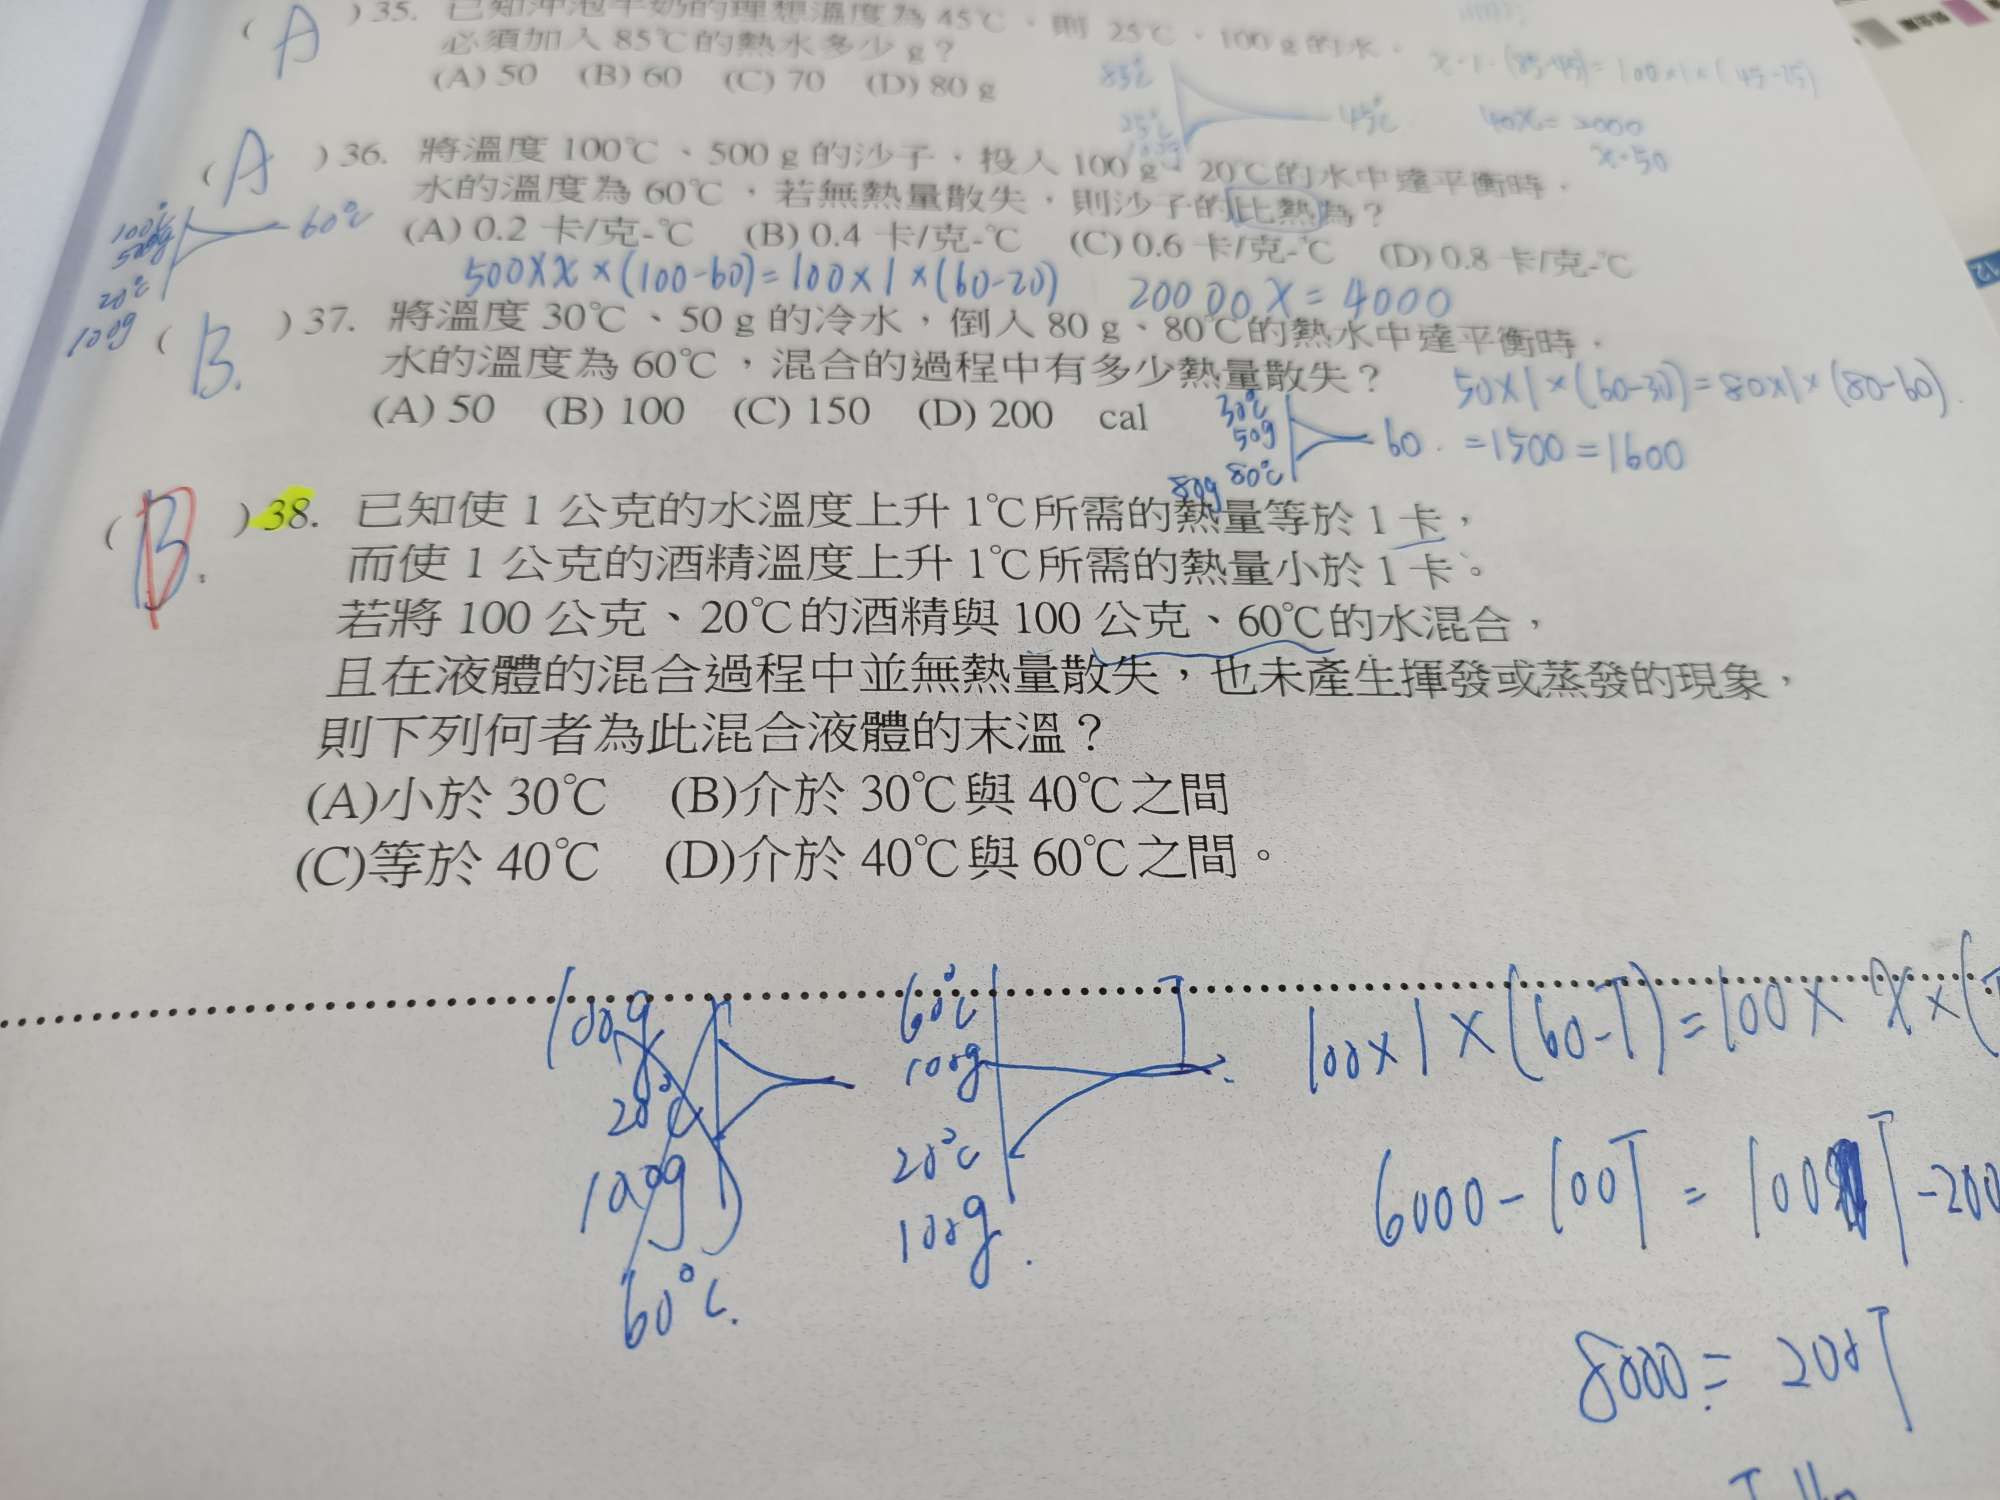 (A) 35. 已知沖泡牛奶的理想溫度為 45℃，則 25℃、100 g 的水，
必須加入 85℃的熱水多少 g？
(A) 50 (B) 60 (C) 70 (D) 80 g
85℃
25℃
45℃
40x = 2000
x = 50
(A) 36. 將溫度 100℃、500 g 的沙子，投入 100 g、20℃的水中達平衡時，
水的溫度為 60℃，若無熱量散失，則沙子的比熱為？
(A) 0.2 卡/克-℃ (B) 0.4 卡/克-℃ (C) 0.6 卡/克-℃ (D) 0.8 卡/克-℃
100℃
500g
20℃
100g
60℃
500×x×(100-60)=100×1×(60-20)
20000x = 4000
(B.) 37. 將溫度 30℃、50 g 的冷水，倒入 80 g、80℃的熱水中達平衡時，
水的溫度為 60℃，混合的過程中有多少熱量散失？
(A) 50 (B) 100 (C) 150 (D) 200 cal
30℃
50g
80℃
80g
60
50×1×(60-30)=80×1×(80-60)
=1500=1600
(B.) 38. 已知使 1 公克的水溫度上升 1℃所需的熱量等於 1 卡，
而使 1 公克的酒精溫度上升 1℃所需的熱量小於 1 卡。
若將 100 公克、20℃的酒精與 100 公克、60℃的水混合，
且在液體的混合過程中並無熱量散失，也未產生揮發或蒸發的現象，
則下列何者為此混合液體的末溫？
(A)小於 30℃ (B)介於 30℃與 40℃之間
(C)等於 40℃ (D)介於 40℃與 60℃之間。
100g
20℃
100g
60℃.
60℃
100g
20℃
100g.
T
100×1×(60-T)=100×x×(T
6000-100T = 100T-200
8000 = 200T
12